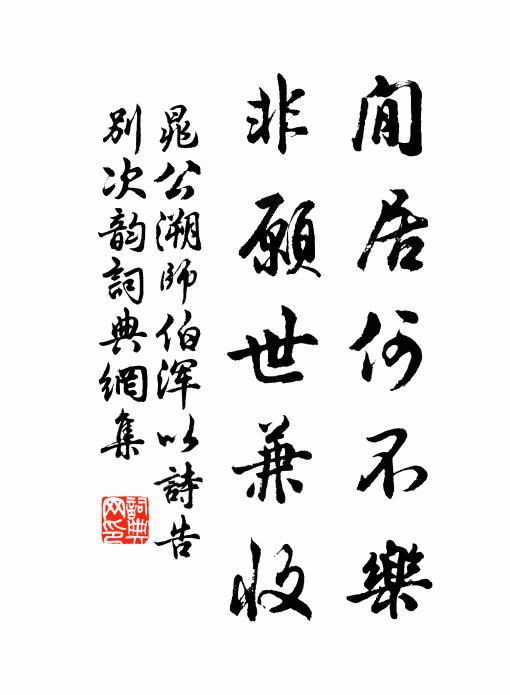 閒居何不樂
非願世兼收
晁公溯師伯渾以詩告
別次韵詞典網集
詞典
网印